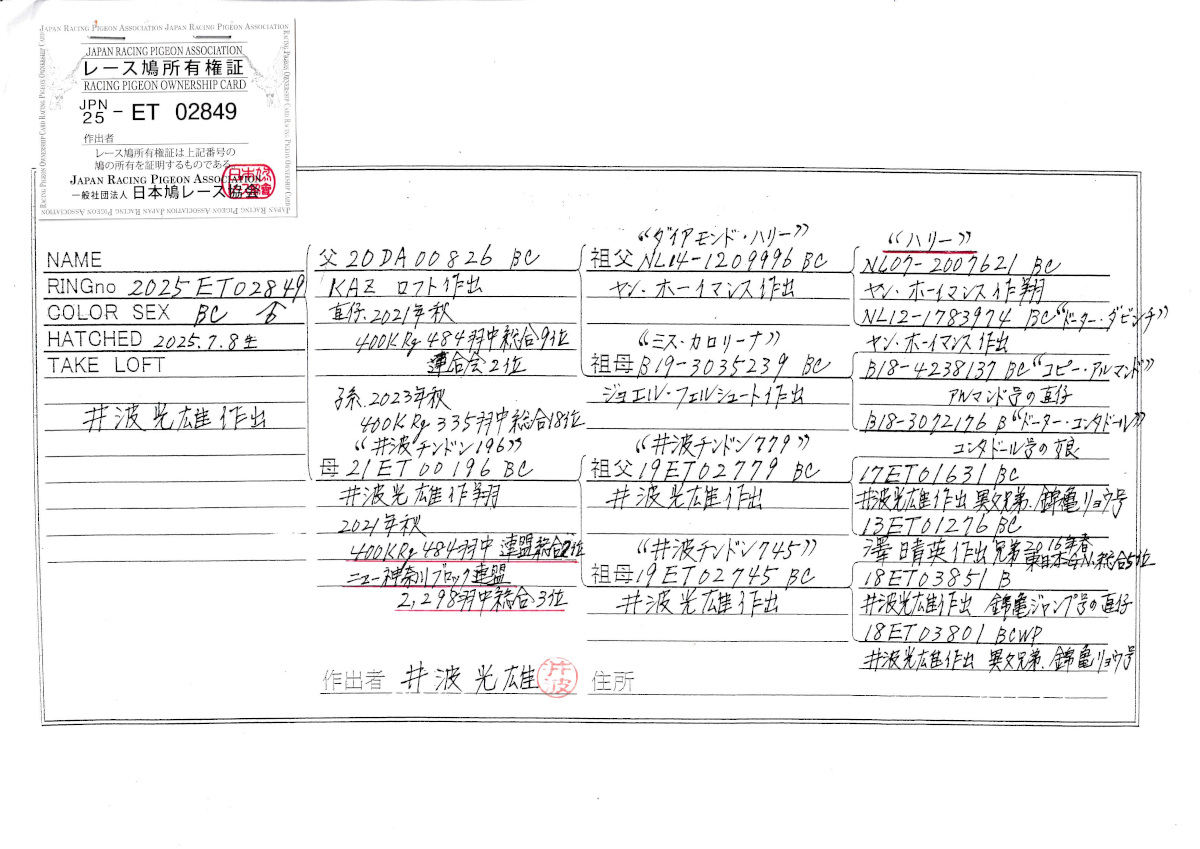 JAPAN RACING PIGEON ASSOCIATION JAPAN RACING PIGEON ASSOCIATION
JAPAN RACING PIGEON ASSOCIATION
レース鳩所有権証
RACING PIGEON OWNERSHIP CARD
JPN
25 - ET 02849
作出者
レース鳩所有権証は上記番号の
鳩の所有を証明するものである。
JAPAN RACING PIGEON ASSOCIATION
一般社団法人 日本鳩レース協会
NAME
RINGno 2025ET02849
COLOR SEX BC ♂
HATCHED 2025.7.8生
TAKE LOFT
井波光雄作出
父20DA00826 BC
KAZ ロフト作出
直仔.2021年秋
400KRg 484羽中総合9位
連合会2位
孫.2023年秋
400KRg 335羽中総合18位
“井波チンドン196”
母21ET00196 BC
井波光雄作翔
2021年秋
400KRg 484羽中 連盟総合2位
ニュー神奈川ブロック連盟
2,298羽中総合3位
“ダイアモンド・ハリー”
祖父NL14-1209996 BC
ヤン・ホーイマンス作出
“ミス・カロリーナ”
祖母B19-3035239 BC
ジョエル・フェルシュート作出
“井波チンドン779”
祖父19ET02779 BC
井波光雄作出
“井波チンドン745”
祖母19ET02745 BC
井波光雄作出
“ハリー”
NL07-2007621 BC
ヤン・ホーイマンス作翔
NL12-1783974 BC“ドーター・ダビンチ”
ヤン・ホーイマンス作出
B18-4238137 BC“コピー・アルマンド”
アルマンド号の直仔
B18-3072176 B“ドーター・コンタドール”
コンタドール号の娘
17ET01631 BC
井波光雄作出 異父兄弟.錦亀リョウ号
13ET01276 BC
澤田晴英作出 兄弟2016年春
総合5位
18ET03851 B
井波光雄作出 錦亀ジャンプ号の直仔
18ET03801 BCWP
井波光雄作出 異父兄弟.錦亀リョウ号
作出者 井波光雄 井波 住所